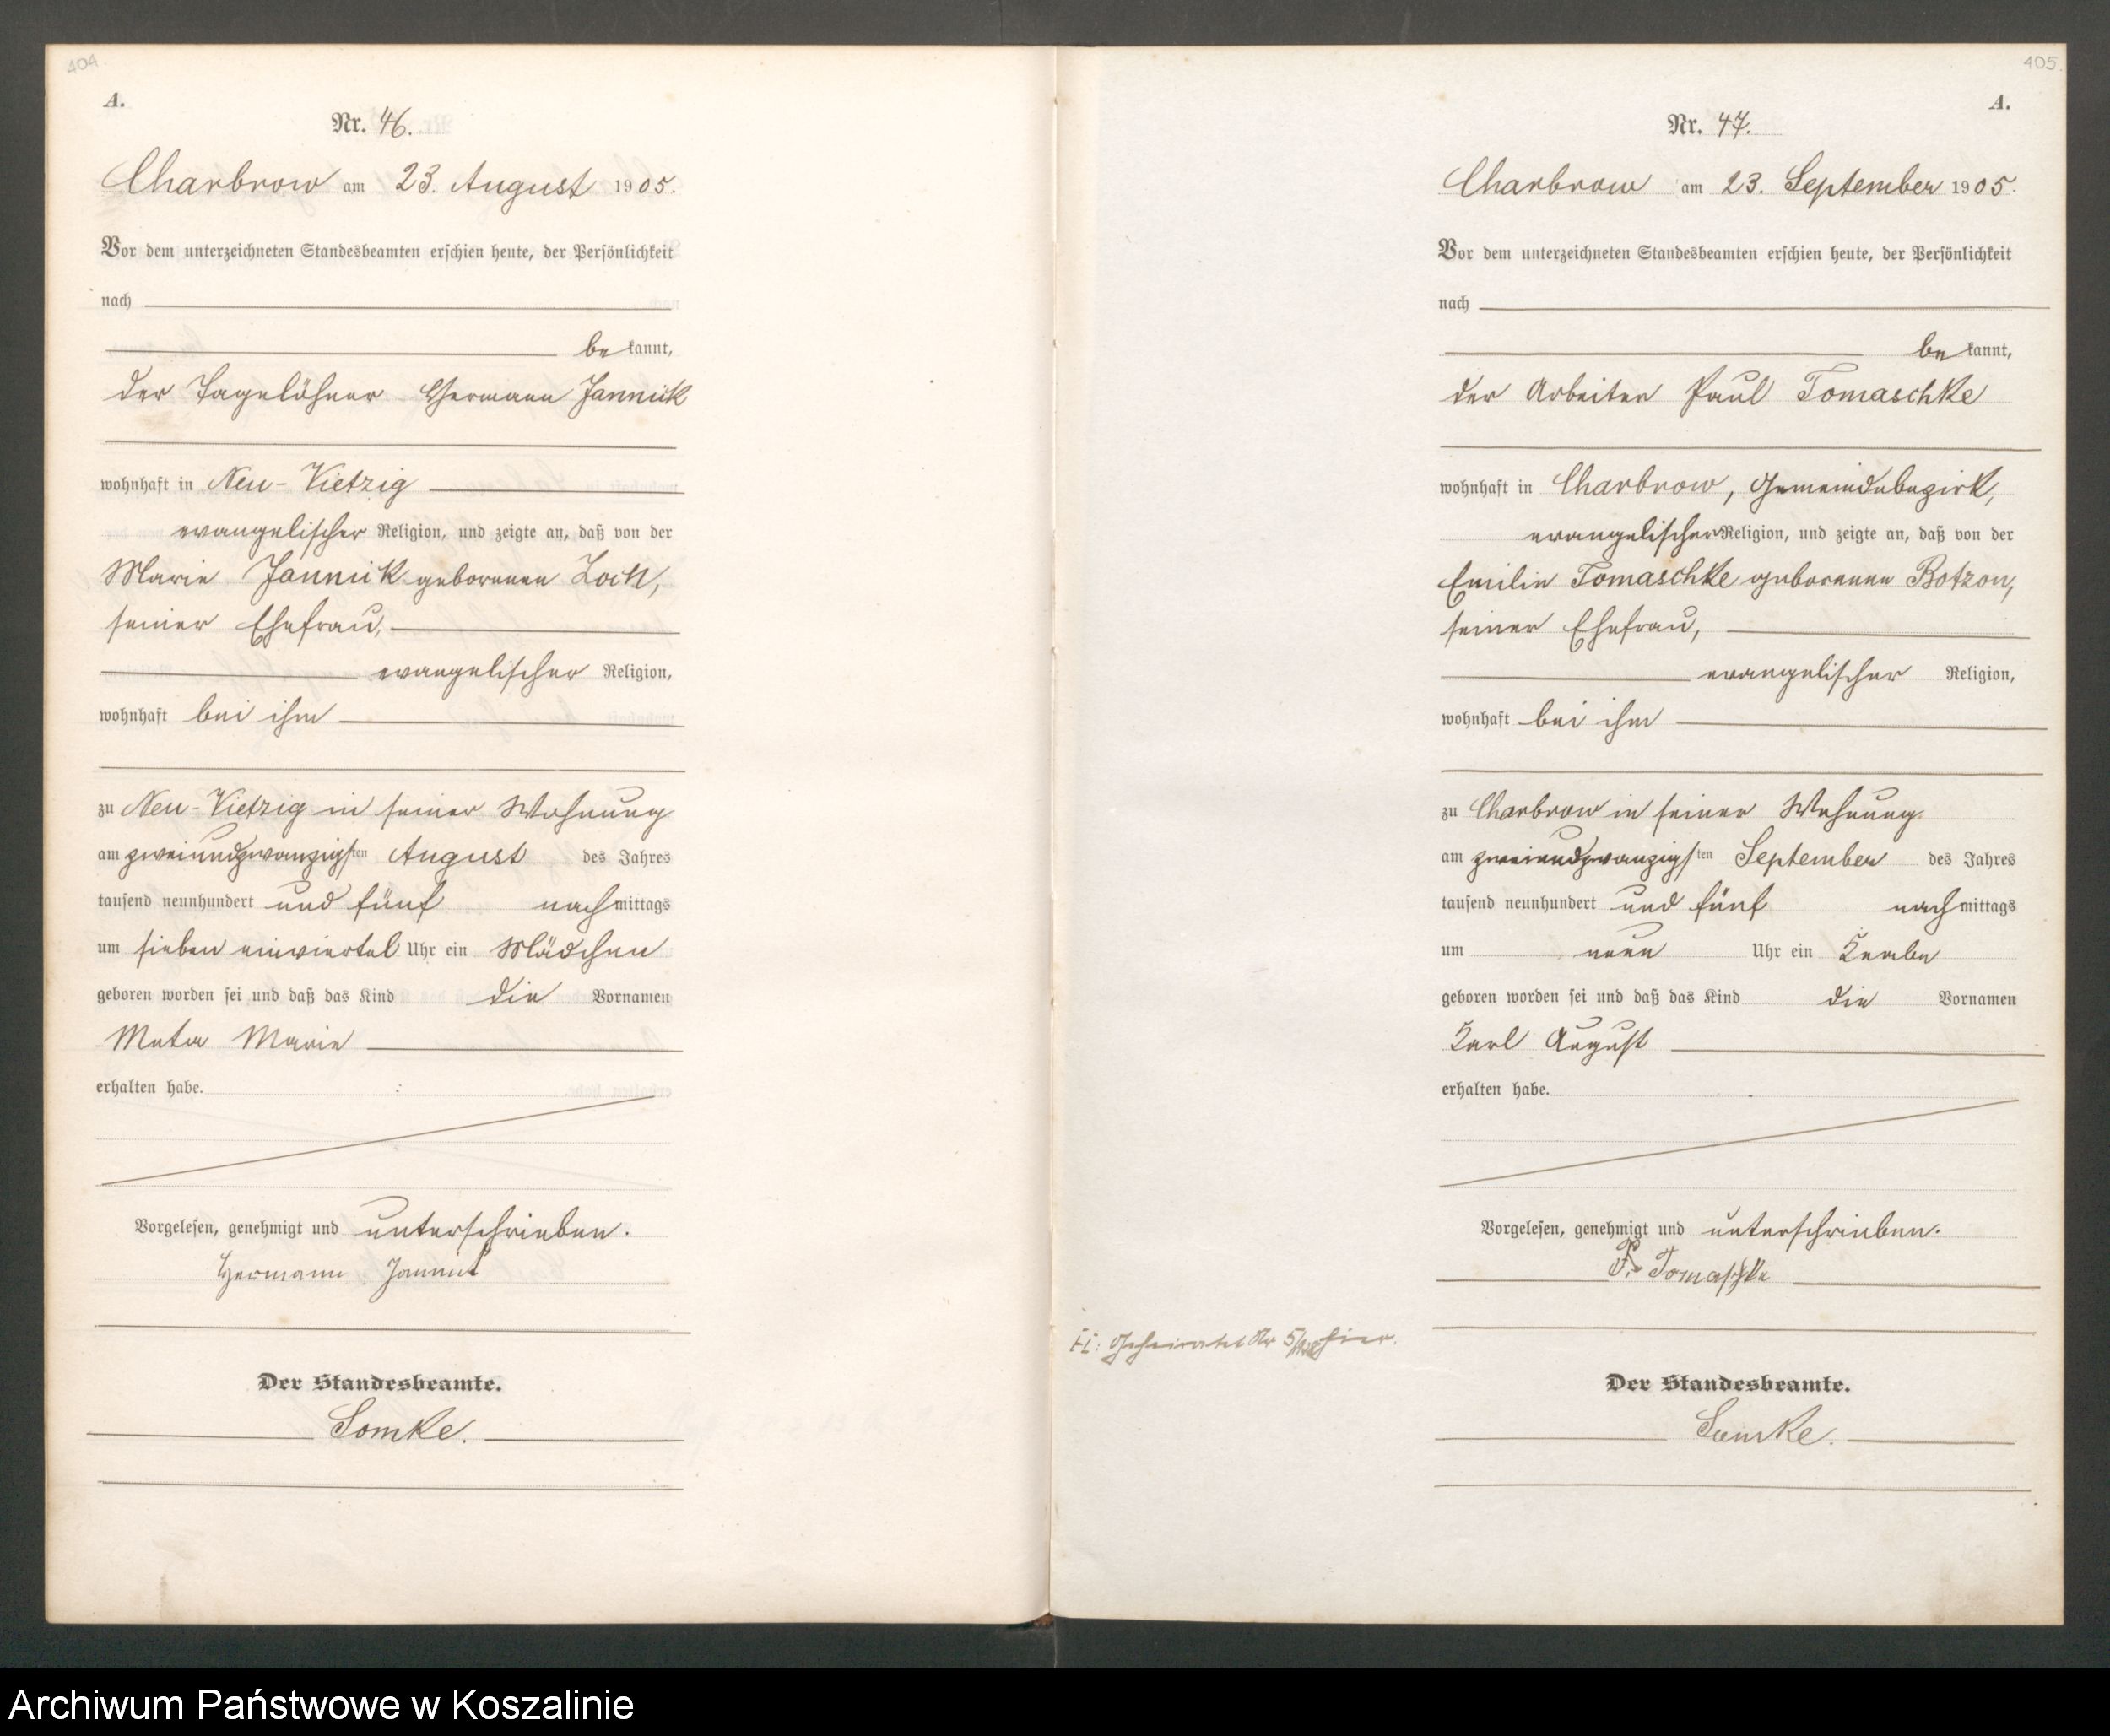 404
A.
Nr. 46.
Charbrow am 23. August 1905.
Vor dem unterzeichneten Standesbeamten erschien heute, der Persönlichkeit
nach
be kannt,
der Tagelöhner Hermann Jannuk
wohnhaft in Neu-Vietzig
evangelischer Religion, und zeigte an, daß von der
Marie Jannuk geborenen Zoch,
seiner Ehefrau,
evangelischer Religion,
wohnhaft bei ihm
zu Neu-Vietzig in seiner Wohnung
am zweiundzwanzigsten August des Jahres
tausend neunhundert und fünf nachmittags
um sieben einviertel Uhr ein Mädchen
geboren worden sei und daß das Kind die Vornamen
Meta Marie
erhalten habe.
Vorgelesen, genehmigt und unterschrieben.
Hermann Jannuk
Der Standesbeamte.
Somke.
405.
A.
Nr. 47.
Charbrow am 23. September 1905.
Vor dem unterzeichneten Standesbeamten erschien heute, der Persönlichkeit
nach
be kannt,
der Arbeiter Paul Tomaschke
wohnhaft in Charbrow, Gemeindebezirk,
evangelischer Religion, und zeigte an, daß von der
Emilie Tomaschke geborenen Botzon,
seiner Ehefrau,
evangelischer Religion,
wohnhaft bei ihm
zu Charbrow in seiner Wohnung
am zweiundzwanzigsten September des Jahres
tausend neunhundert und fünf nachmittags
um neun Uhr ein Knabe
geboren worden sei und daß das Kind die Vornamen
Karl August
erhalten habe.
Vorgelesen, genehmigt und unterschrieben.
P. Tomaschke
Geheiratet Nr 5 hier.
Der Standesbeamte.
Somke.
Archiwum Państwowe w Koszalinie